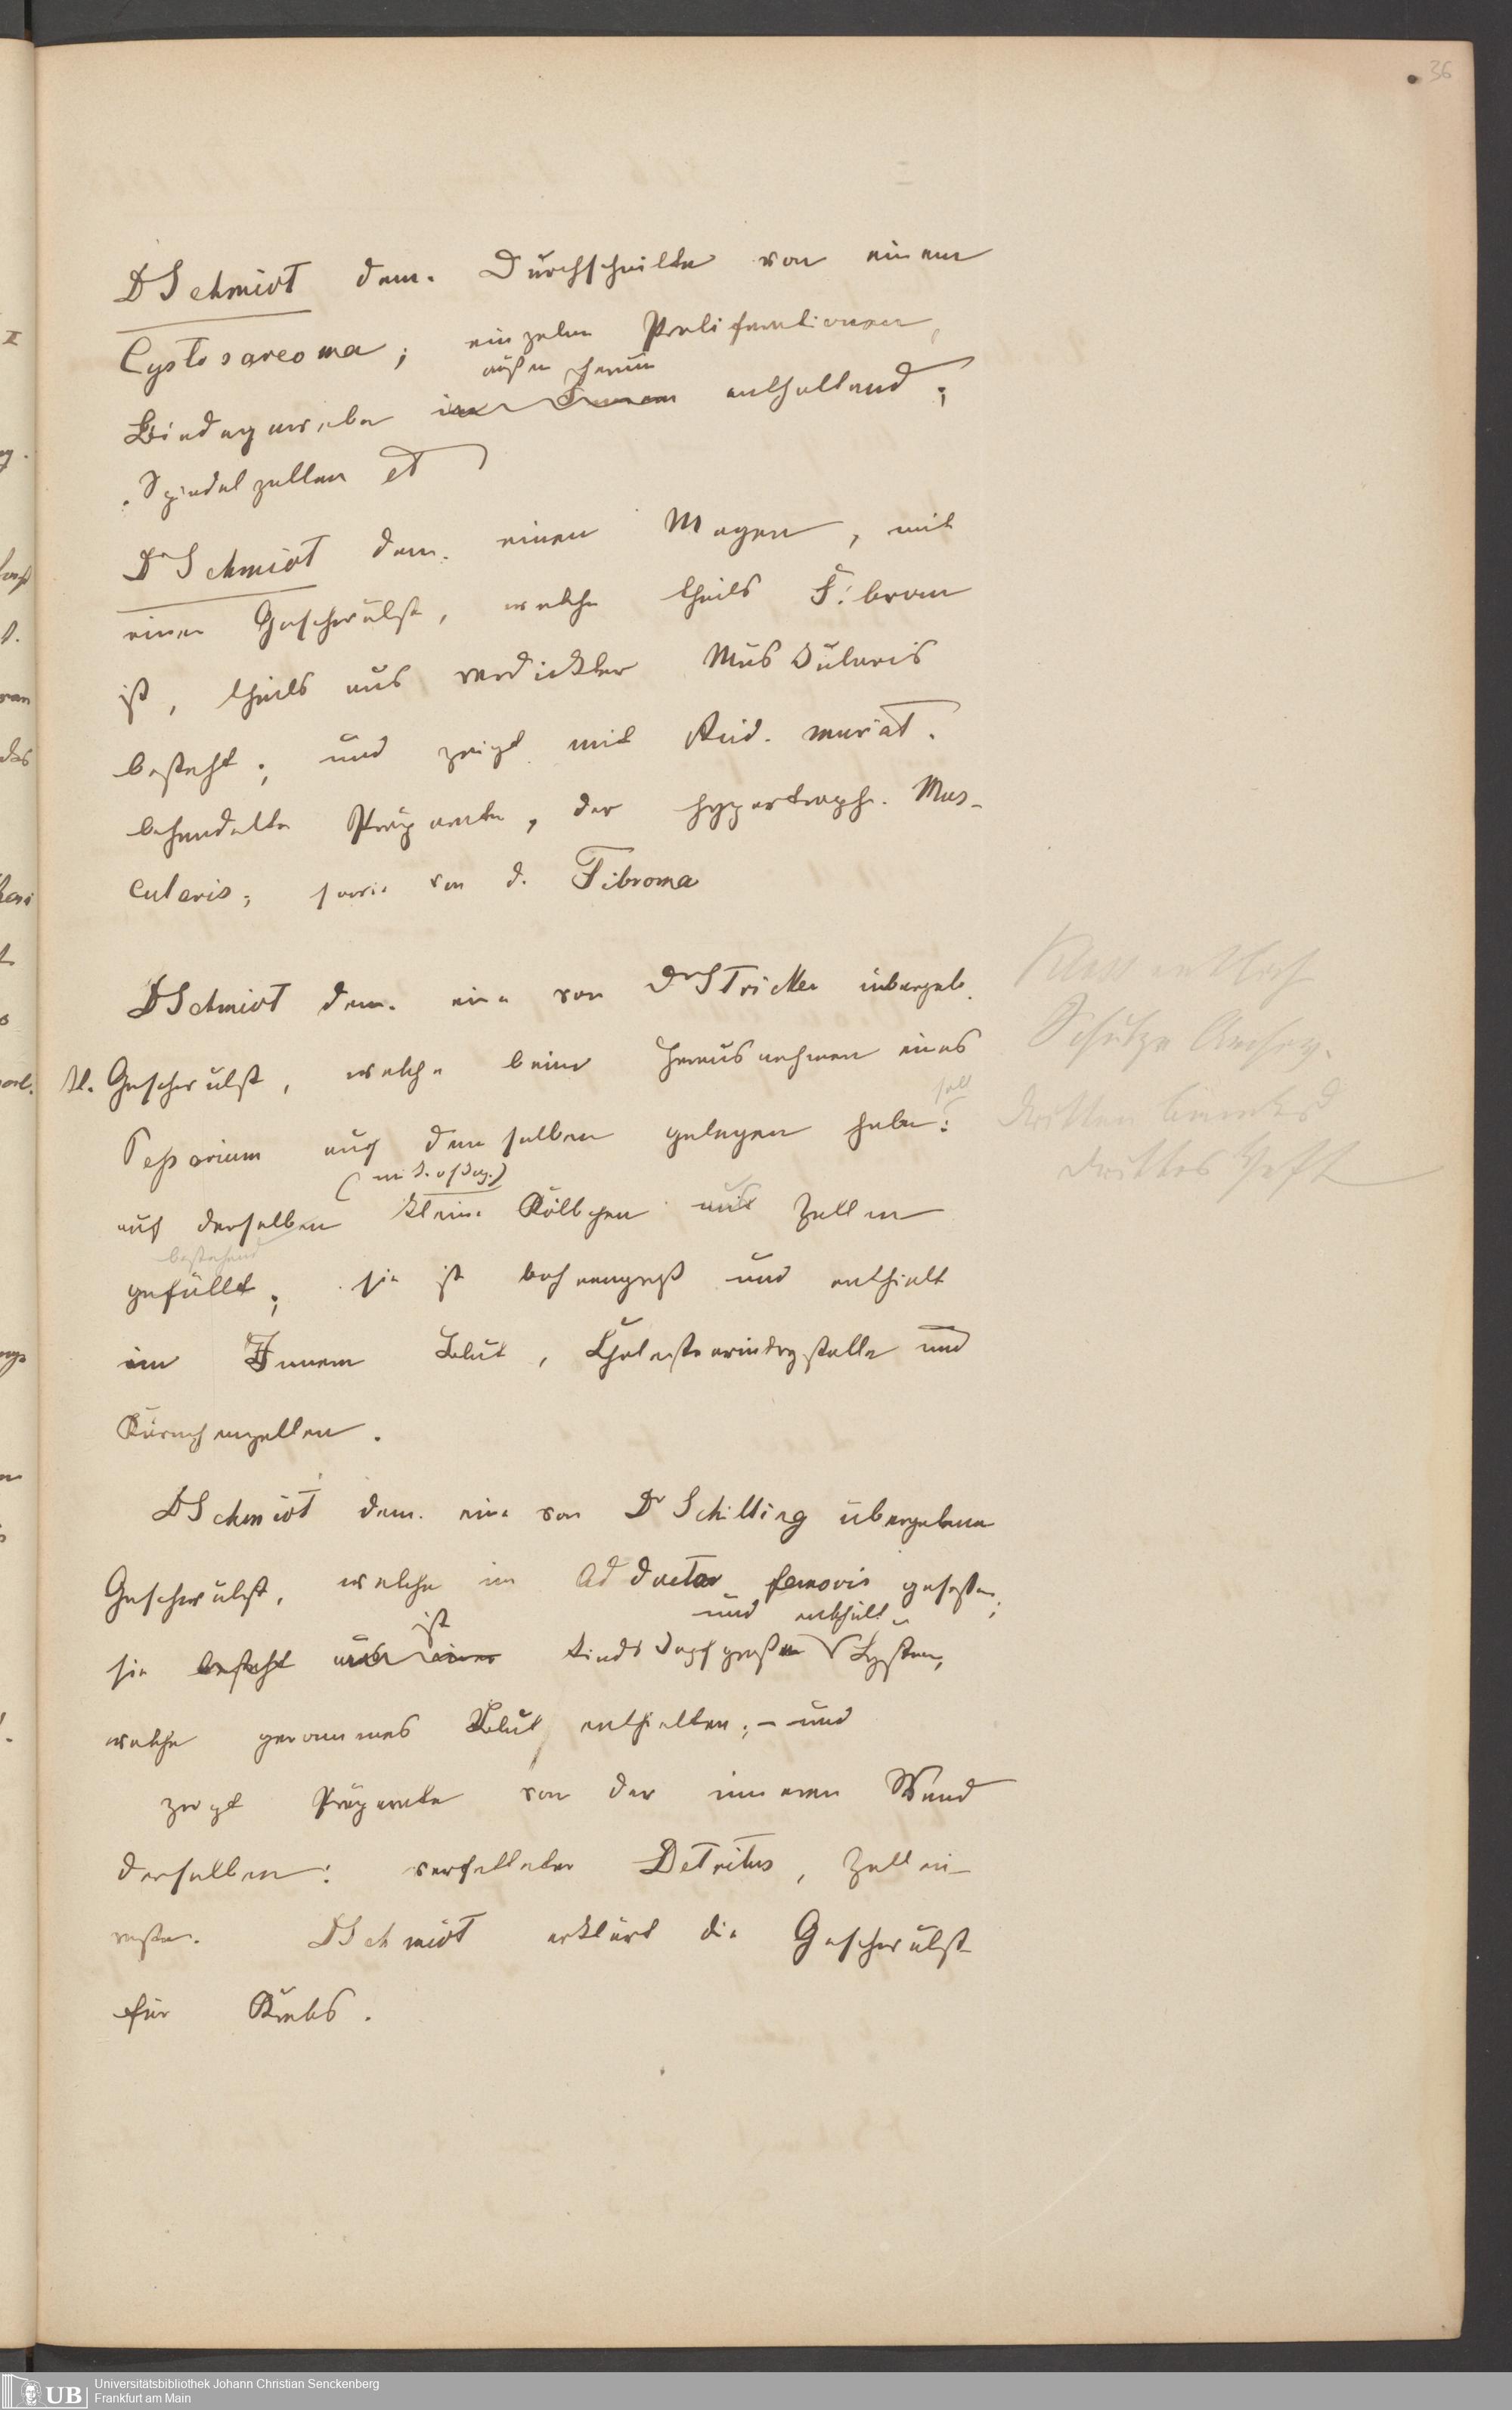 36
D Schmidt dem. Durchschnitte von einem
Cystosarcoma; einzelne Proliferationen,
außen herum
Bindegewebe im Innern enthaltend;
Spindelzellen et
Dr Schmidt dem. einen Magen, mit
einer Geschwulst, welche theils Fibrom
ist, theils aus verdickter Muskularis
besteht; und zeigt mit Acid. muriat.
behandelte Präparate, der hypertroph. Mus-
cularis; sowie von d. Fibroma
D Schmidt dem. eine von Dr Stricker übergeb.
kl. Geschwulst, welche beim Herausnehmen eines
soll
Pessarium auf demselben gelegen habe:
auf derselben kleine Kölbchen aus Zellen
bestehend
gefüllt; sie ist bohnengroß und enthielt
im Innern Blut, Cholestearinkrystalle und
Körnchenzellen.
D Schmidt dem. eine von Dr Schilling übergebene
Geschwulst, welche im Adductor femoris gesessen;
ist und enthielt
sie besteht aus einer kindskopfgroßen Cysten,
welche geronnenes Blut enthielten; – und
zeigt Präparate von der inneren Wand
derselben: verfetteter Detritus, Zellen
reste. D Schmidt erklärt die Geschwulst
für Krebs.
Schutze
dritten Bandes
drittes Heft
Universitätsbibliothek Johann Christian Senckenberg
Frankfurt am Main
UB